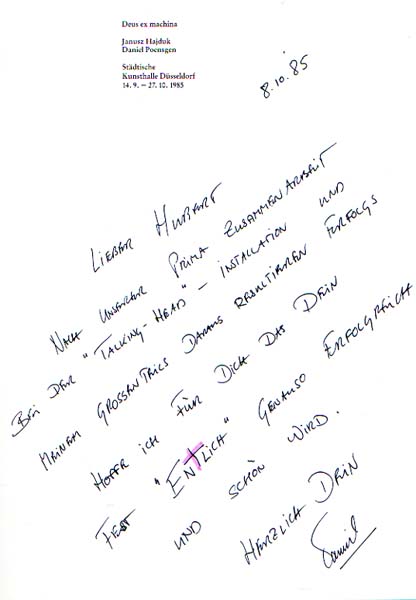 Deus ex machina
Janusz Hajduk
Daniel Poensgen
Städtische
Kunsthalle Düsseldorf
14. 9. – 27. 10. 1985
8.10.85
LIEBER HUBERT
NACH UNSERER PRIMA ZUSAMMENARBEIT
BEI DER "TALKING-HEAD"-INSTALLATION UND
MEINEM GROSSANTEILS DARAUS RESULTIEREN ERFOLGS
HOFFE ICH FÜR DICH DAS DEIN
FEST "ENTLICH" GENAUSO ERFOLGREICH
UND SCHÖN WIRD.
HERZLICH DEIN
Daniel